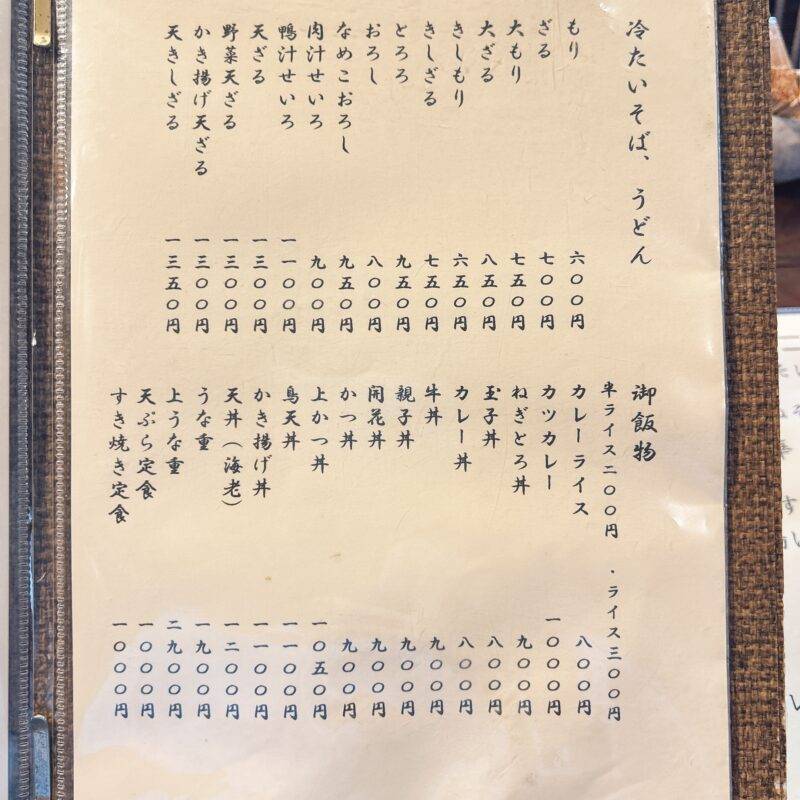 冷たいそば、うどん
もり 六〇〇円
ざる 七〇〇円
大もり 七五〇円
大ざる 八五〇円
きしもり 六五〇円
きしざる 七五〇円
とろろ 九五〇円
おろし 八〇〇円
なめこおろし 九五〇円
肉汁せいろ 九〇〇円
鴨汁せいろ 一一〇〇円
天ざる 一三〇〇円
野菜天ざる 一三〇〇円
かき揚げ天ざる 一三〇〇円
天きしざる 一三五〇円
御飯物
半ライス二〇〇円 ・ライス三〇〇円
カレーライス 八〇〇円
カツカレー 一〇〇〇円
ねぎとろ丼 九〇〇円
玉子丼 八〇〇円
カレー丼 八〇〇円
牛丼 九〇〇円
親子丼 九〇〇円
開花丼 九〇〇円
かつ丼 九〇〇円
上かつ丼 一〇五〇円
鳥天丼 一一〇〇円
かき揚げ丼 一一〇〇円
天丼(海老) 一二〇〇円
うな重 一九〇〇円
上うな重 二九〇〇円
天ぷら定食 一〇〇〇円
すき焼き定食 一〇〇〇円